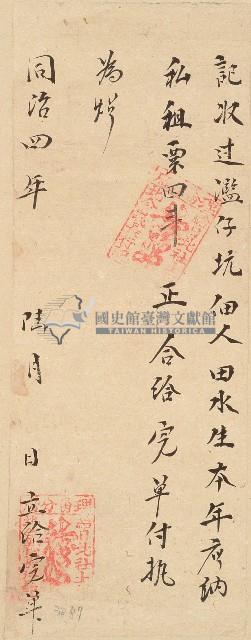 記收过濫仔坑佃人田水生本年應納
私租粟四斗 正合給完单付执
為炤
同治四年 陆月 日 立給完单
國史館臺灣文獻館
TAIWAN HISTORICA